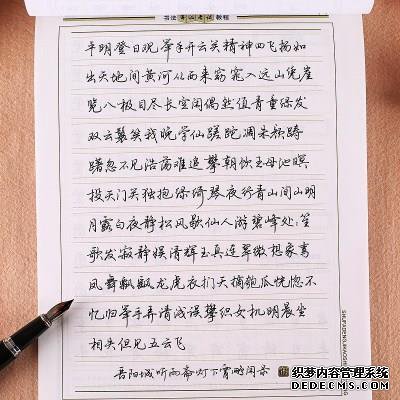 书法 教程
平明登日观举手开云关精神四飞扬如
出天地间黄河从西来窈窕入远山凭崖
览八极目尽长空闲偶然值青童绿发
双云鬟笑我晚学仙蹉跎凋朱颜踌
躇忽不见浩荡难追攀朝饮王母池暝
投天门关独抱绿绮琴夜行青山间山明
月露白夜静松风歇仙人游碧峰处:笙
歌发寂静娱清辉玉真连翠微想象鸾
凤舞飘飖龙虎衣扪天摘匏瓜恍惚不
忆归举手弄清浅误攀织女机明晨坐
相失但见五云飞
阳城听雨斋灯下
织梦内容管理系统
DEDECMS.COM